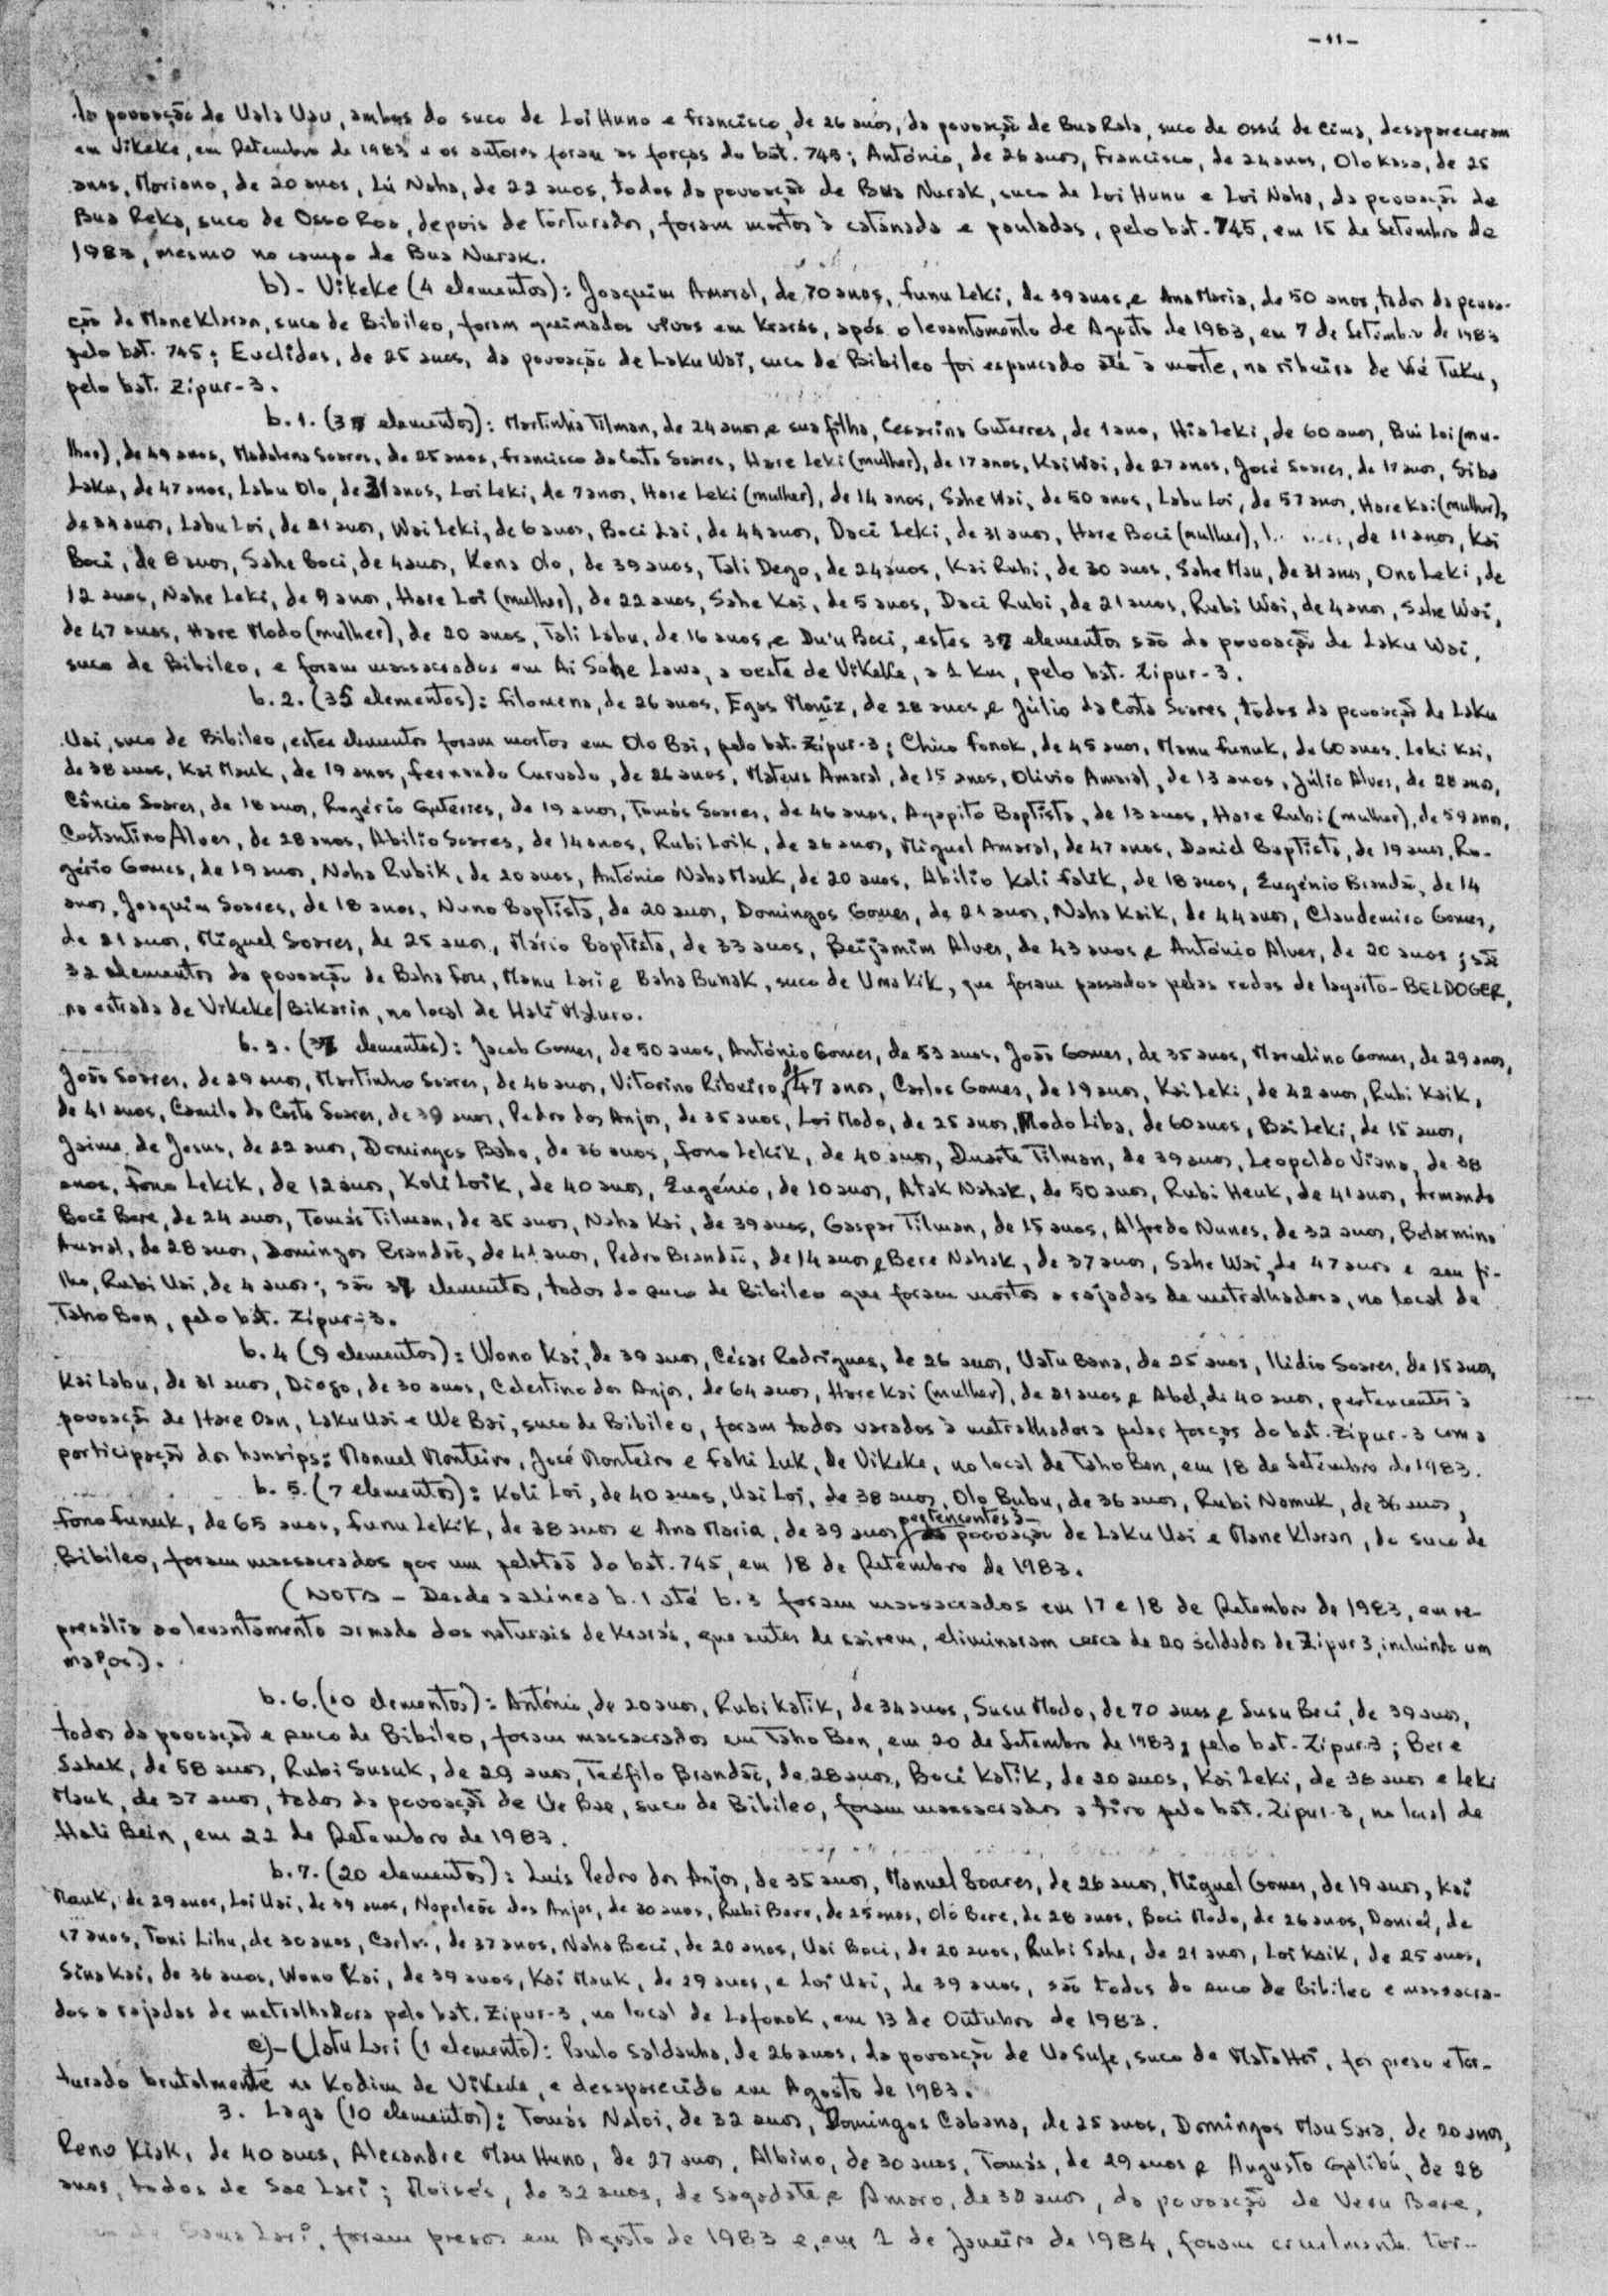 -11-
da povoação de Uala Uau, ambos do suco de Loi Huno e Francisco, de 26 anos, da povoação de Bua Rala, suco de Ossú de Cima, desapareceram
em Vikeke, em Setembro de 1983 e os autores foram as forças do bat. 745; António, de 26 anos, Francisco, de 24 anos, Olo Kasa, de 25
anos, Mariano, de 20 anos, Lú Naha, de 22 anos, todos da povoação de Bua Nurak, suco de Loi Hunu e Loi Naha, da povoação de
Bua Reka, suco de Osso Roa, depois de torturados, foram mortos à catanada e pauladas, pelo bat. 745, em 15 de Setembro de
1983, mesmo no campo de Bua Nurak.
b)- Vikeke (4 elementos): Joaquim Amaral, de 70 anos, Funu Leki, de 39 anos, e Ana Maria, de 50 anos, todos da povoa-
ção de Mane Klaran, suco de Bibileo, foram queimados vivos em Krarás, após o levantamento de Agosto de 1983, em 7 de Setembro de 1983
pelo bat. 745; Euclides, de 25 anos, da povoação de Laku Wai, suco de Bibileo foi espancado até à morte, na ribeira de Wé Tuku,
pelo bat. Zipur-3.
b.1. (37 elementos): Martinha Tilman, de 24 anos e sua filha, Cesarina Guterres, de 1 ano, Hia Leki, de 60 anos, Bui Loi (mu-
lher), de 49 anos, Madalena Soares, de 25 anos, Francisco da Costa Soares, Hare Leki (mulher), de 17 anos, Kai Wai, de 27 anos, José Soares, de 17 anos, Siba
Laku, de 47 anos, Labu Olo, de 31 anos, Loi Leki, de 7 anos, Hare Leki (mulher), de 14 anos, Sahe Wai, de 50 anos, Labu Loi, de 57 anos, Hare Kai (mulher),
de 34 anos, Labu Loi, de 21 anos, Wai Leki, de 6 anos, Boci Lai, de 44 anos, Daci Leki, de 31 anos, Hare Boci (mulher), de 11 anos, Kai
Boci, de 8 anos, Sahe Boci, de 4 anos, Kena Olo, de 39 anos, Tali Dego, de 24 anos, Kai Rubi, de 30 anos, Sahe Mau, de 31 anos, Ono Leki, de
12 anos, Nahe Leki, de 9 anos, Hare Loi (mulher), de 22 anos, Sahe Kai, de 5 anos, Daci Rubi, de 21 anos, Rubi Wai, de 4 anos, Sahe Wai,
de 47 anos, Hare Modo (mulher), de 20 anos, Tali Labu, de 16 anos, e Du'u Boci, estes 37 elementos são da povoação de Laku Wai,
suco de Bibileo, e foram massacrados em Ai Sahe Lawa, a oeste de Vikeke, a 1 km, pelo bat. Zipur-3.
b.2. (35 elementos): Filomena, de 26 anos, Egas Moniz, de 28 anos, e Júlio da Costa Soares, todos da povoação de Laku
Uai, suco de Bibileo, estes elementos foram mortos em Olo Bai, pelo bat. Zipur-3; Chico Fonok, de 45 anos, Manu Funuk, de 60 anos, Leki Kai,
de 38 anos, Kai Mauk, de 19 anos, Fernando Curvado, de 26 anos, Mateus Amaral, de 15 anos, Olivio Amaral, de 13 anos, Júlio Alves, de 28 anos,
Câncio Soares, de 18 anos, Rogério Guterres, de 19 anos, Tomás Soares, de 46 anos, Agapito Baptista, de 13 anos, Hare Rubi (mulher), de 59 anos,
Costantino Alves, de 28 anos, Abilio Soares, de 14 anos, Rubi Loik, de 26 anos, Miguel Amaral, de 47 anos, Daniel Baptista, de 19 anos, Ro-
gério Gomes, de 19 anos, Naha Rubik, de 20 anos, António Naha Mauk, de 20 anos, Abílio Kali Falik, de 18 anos, Eugénio Brandão, de 14
anos, Joaquim Soares, de 18 anos, Nuno Baptista, de 20 anos, Domingos Gomes, de 21 anos, Naha Kaik, de 44 anos, Claudemiro Gomes,
de 21 anos, Miguel Soares, de 25 anos, Mário Baptista, de 33 anos, Beijamim Alves, de 43 anos e António Alves, de 20 anos; são
32 elementos da povoação de Baha Fou, Manu Lari e Baha Bunak, suco de Uma Kik, que foram passados pelas rodas de lagarto-BELDOGER,
na estrada de Vikeke/Bikarin, no local de Hali Maluro.
b.3. (37 elementos): Jacob Gomes, de 50 anos, António Gomes, de 53 anos, João Gomes, de 35 anos, Marcelino Gomes, de 29 anos,
João Soares, de 29 anos, Martinho Soares, de 46 anos, Vitorino Ribeiro, de 47 anos, Carlos Gomes, de 19 anos, Kai Leki, de 42 anos, Rubi Kaik,
de 41 anos, Camilo da Costa Soares, de 39 anos, Pedro dos Anjos, de 35 anos, Loi Modo, de 25 anos, Modo Liba, de 60 anos, Bai Leki, de 15 anos,
Jaime de Jesus, de 22 anos, Domingos Bobo, de 36 anos, Fono Lekik, de 40 anos, Duarte Tilman, de 39 anos, Leopoldo Viana, de 38
anos, Fono Lekik, de 12 anos, Koli Loik, de 40 anos, Eugénio, de 10 anos, Atak Nahak, de 50 anos, Rubi Heuk, de 41 anos, Armando
Boci Bere, de 24 anos, Tomás Tilman, de 35 anos, Naha Kai, de 39 anos, Gaspar Tilman, de 15 anos, Alfredo Nunes, de 32 anos, Belarmino
Amaral, de 28 anos, Domingos Brandão, de 41 anos, Pedro Brandão, de 14 anos e Bere Nahak, de 37 anos, Sahe Wai, de 47 anos e seu fi-
lho, Rubi Uai, de 4 anos; são 37 elementos, todos do suco de Bibileo que foram mortos a rajadas de metralhadora, no local de
Taho Ben, pelo bat. Zipur-3.
b.4 (9 elementos): Wono Kai, de 39 anos, César Rodrigues, de 26 anos, Uatu Bana, de 25 anos, Ilidio Soares, de 15 anos,
Kai Labu, de 31 anos, Diogo, de 30 anos, Celestino dos Anjos, de 64 anos, Hare Kai (mulher), de 21 anos e Abel, de 40 anos, pertencentes à
povoação de Hare Oan, Laku Uai e We Bai, suco de Bibileo, foram todos varados à metralhadora pelas forças do bat. Zipur-3 com a
participação dos hansips: Manuel Monteiro, José Monteiro e Fahi Luk, de Vikeke, no local de Taho Ben, em 18 de Setembro de 1983.
b.5. (7 elementos): Koli Loi, de 40 anos, Uai Loi, de 38 anos, Olo Bubu, de 36 anos, Rubi Namuk, de 36 anos,
Fono Funuk, de 65 anos, Funu Lekik, de 38 anos e Ana Maria, de 39 anos, pertencentes à povoação de Laku Uai e Mane Klaran, do suco de
Bibileo, foram massacrados por um pelotão do bat. 745, em 18 de Setembro de 1983.
(NOTA - Desde a alínea b.1 até b.3 foram massacrados em 17 e 18 de Setembro de 1983, em re-
presália ao levantamento armado dos naturais de Krarás, que antes de sairem, eliminaram cerca de 20 soldados de Zipur 3, incluindo um
major.).
b.6. (10 elementos): António, de 20 anos, Rubi Katik, de 34 anos, Susu Modo, de 70 anos e Susu Beci, de 39 anos,
todos da povoação e suco de Bibileo, foram massacrados em Taho Ben, em 20 de Setembro de 1983, pelo bat. Zipur-3; Bere
Sahak, de 58 anos, Rubi Susuk, de 29 anos, Teófilo Brandão, de 28 anos, Boci Katik, de 20 anos, Kai Leki, de 38 anos e Leki
Mauk, de 37 anos, todos da povoação de Ue Bae, suco de Bibileo, foram massacrados a tiro pelo bat. Zipur-3, no local de
Hali Bein, em 22 de Setembro de 1983.
b.7. (20 elementos): Luís Pedro dos Anjos, de 35 anos, Manuel Soares, de 26 anos, Miguel Gomes, de 19 anos, Kai
Mauk, de 29 anos, Loi Uai, de 39 anos, Napoleão dos Anjos, de 30 anos, Rubi Bere, de 25 anos, Olo Bere, de 28 anos, Boci Modo, de 26 anos, Daniel, de
17 anos, Toni Lihu, de 30 anos, Carlos, de 37 anos, Naha Beci, de 20 anos, Uai Boci, de 20 anos, Rubi Sahe, de 21 anos, Loi Kaik, de 25 anos,
Sina Kai, de 36 anos, Wono Kai, de 39 anos, Kai Mauk, de 29 anos, e Loi Uai, de 39 anos, são todos do suco de Bibileo e massacra-
dos a rajadas de metralhadora pelo bat. Zipur-3, no local de Lafonok, em 13 de Outubro de 1983.
c)- Uatu Lari (1 elemento): Paulo Saldanha, de 26 anos, da povoação de Ua Sufe, suco de Mata Hoi, foi preso e tor-
turado brutalmente no Kodim de Vikeke, e desaparecido em Agosto de 1983.
3. Laga (10 elementos): Tomás Naloi, de 32 anos, Domingos Cabana, de 25 anos, Domingos Mau Sara, de 20 anos,
Reno Kiak, de 40 anos, Alexandre Mau Huno, de 27 anos, Albino, de 30 anos, Tomás, de 29 anos e Augusto Galibú, de 28
anos, todos de Sae Lari; Moisés, de 32 anos, de Sagadate e Amaro, de 38 anos, da povoação de Veru Bere,
de Sama Lari, foram presos em Agosto de 1983 e, em 1 de Janeiro de 1984, foram cruelmente tor-